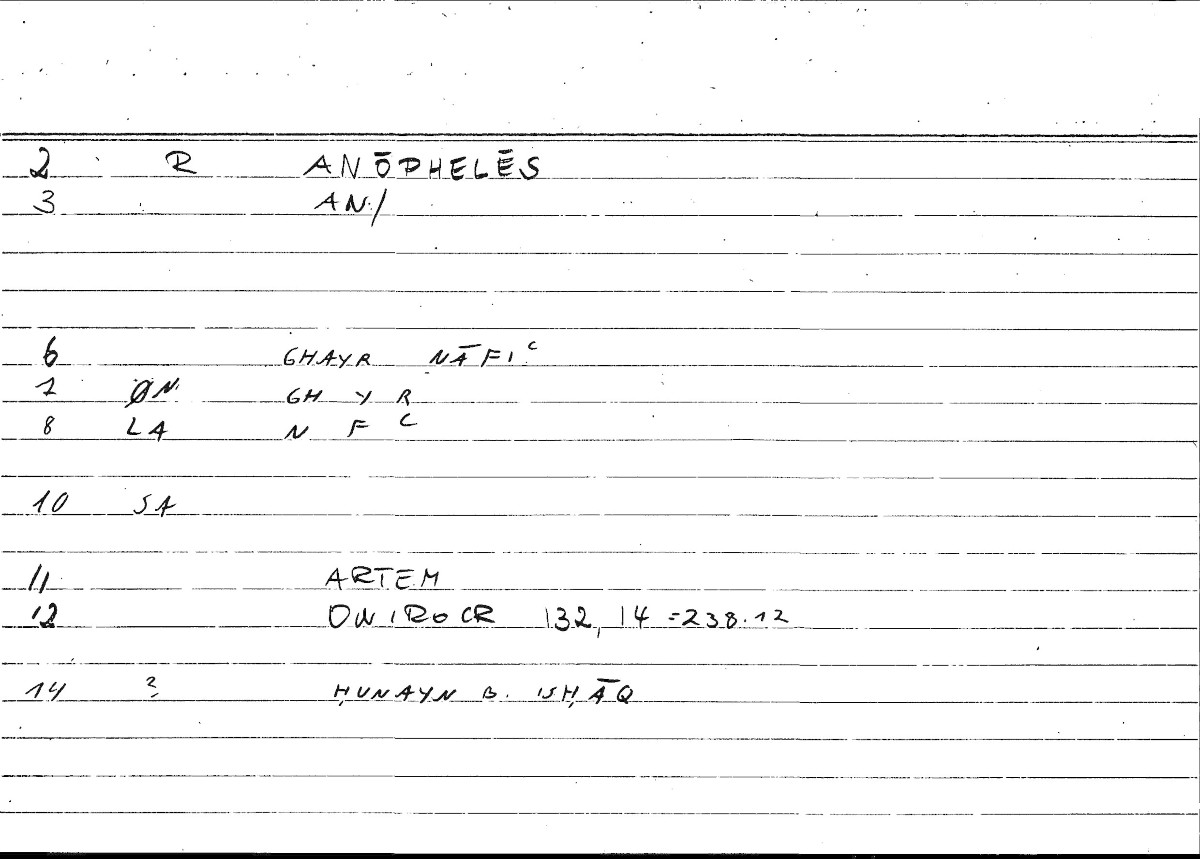 2 R ANŌPHELĒS
3 AN/
6 GHAYR NĀFIᶜ
7 ØN. GH Y R
8 LA N F ᶜ
10 SA
11 ARTEM
12 ONIROCR 132, 14 =238.12
14 ? ḤUNAYN B. ISḤĀQ